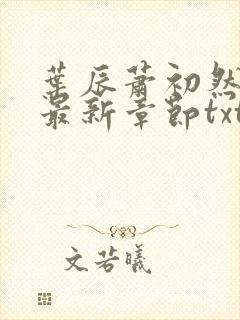 葉辰蕭初然
最新章節txt
文若曦